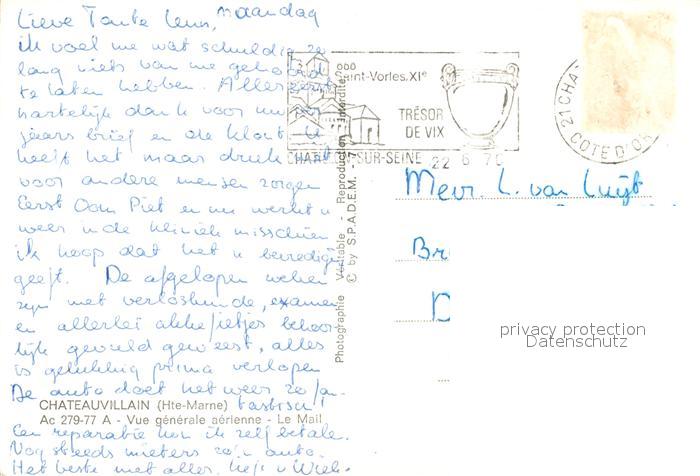 Lieve Tante Leus, maandag
ik voel me wat schuldig zo
lang niets van me gehoord
te laten hebben. Allereerst
hartelijk dank voor uw
jaars brief en de klok. U
heeft het maar druk
voor andere mensen zorgen
Eerst Oom Piet en nu werkt u
weer in de kliniek misschien
ik hoop dat het u bevrediging
geeft. De afgelopen weken
zijn met verloskunde, examen
en allerlei akkefietjes behoor-
lijk gevuld geweest, alles
is gelukkig prima verlopen
De auto doet het weer zo fan-
tastisch!
CHATEAUVILLAIN (Hte-Marne)
Ac 279-77 A - Vue générale aérienne - Le Mail
Een reparatie kon ik zelf betalen.
Nog steeds zo'n auto.
Het beste met alles, liefs v Wieb.
Photographie Véritable - Reproduction Interdite
© by S.P.A.D.E.M. -
Saint-Vorles.XIe
TRÉSOR
DE VIX
CHATILLON-SUR-SEINE 22 6 70
21 CHAT
COTE D'OR
Mevr. L. van Luijt
Br
D
privacy protection
Datenschutz